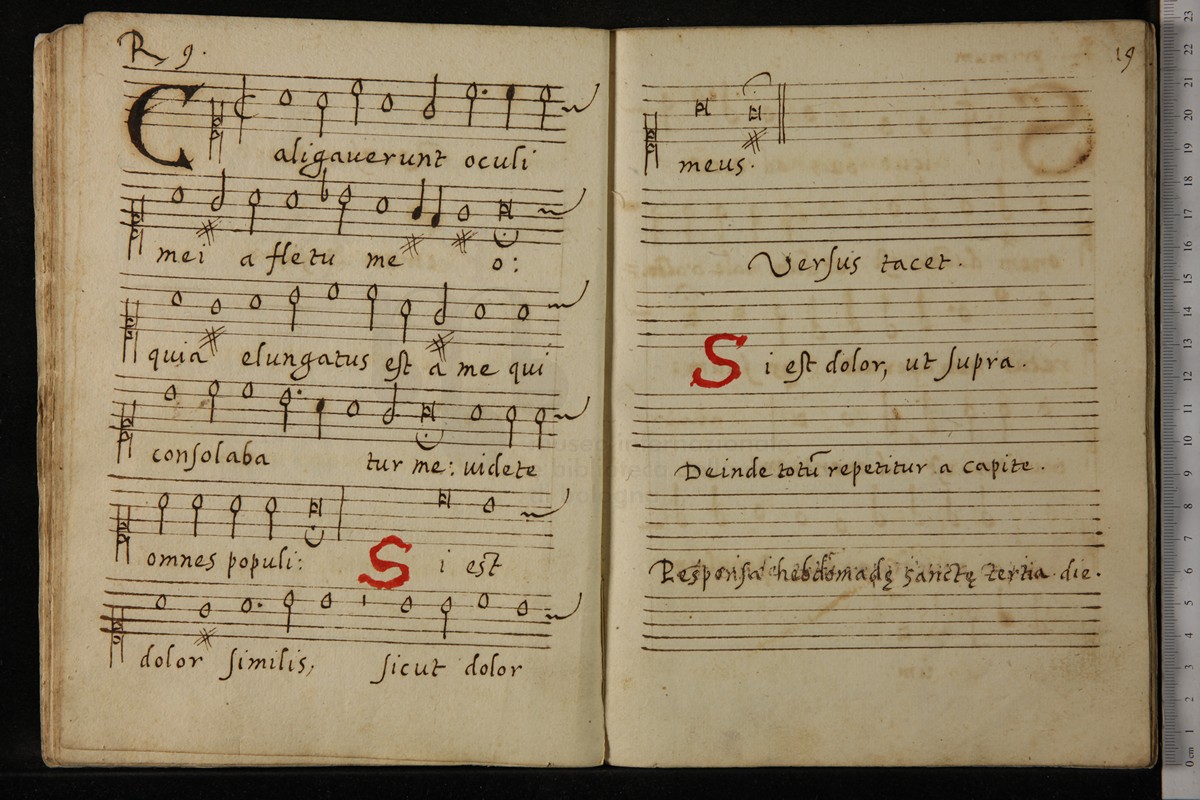 R 9.
Caligauerunt oculi
mei a fletu me o:
quia elungatus est a me qui
consolaba tur me: uidete
omnes populi: Si est
dolor similis, sicut dolor
19
meus.
Versus tacet.
Si est dolor, ut supra.
Deinde totũ repetitur a capite.
Responsa hebdomadę sanctę tertia die.
museo internazionale
e biblioteca
di bologna
0 cm 1 2 3 4 5 6 7 8 9 10 11 12 13 14 15 16 17 18 19 20 21 22 23